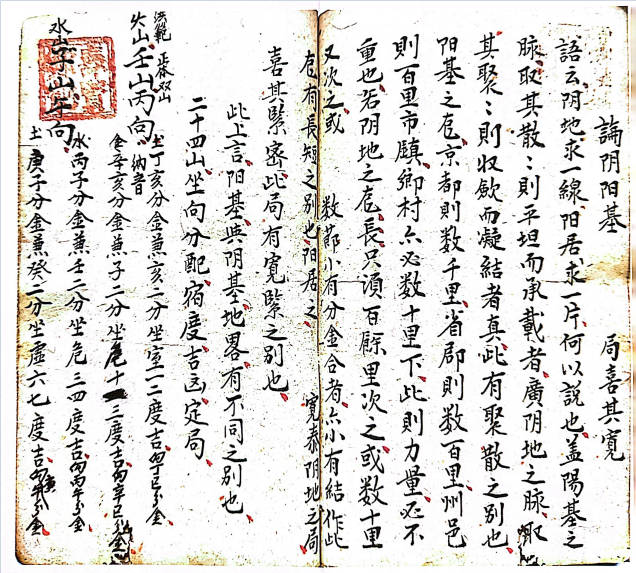 論阴阳基 局喜其寬
語云阴地求一線阳居求一片何以說也盖陽基之
脉取其散〻則平坦而承載者廣阴地之脉取
其聚〻則收歛而凝結者真此有聚散之别也
阳基之庬京都則数千里省郡則数百里州邑
則百里市鎮鄉村亦必数十里下此則力量必不
重也若阴地之庬長只須百餘里次之或数十里
又次之或 数節小有分金合者亦小有結作此
庬有長短之别也阳居之 寬泰阴地之局
喜其緊密此局有寬緊之别也
此上言阳基與阴基地畧有不同之别也
二十四山坐向分配宿度吉凶定局
洪範 双山
火山壬山丙向
土丁亥分金兼亥二分坐室一二度吉向丁巳分金
納音
金辛亥分金兼子二分坐危十三度吉向辛巳分金
水山子山午向
水丙子分金兼壬二分坐危三四度吉向丙午分金
土庚子分金兼癸二分坐虛六七度吉向庚午分金